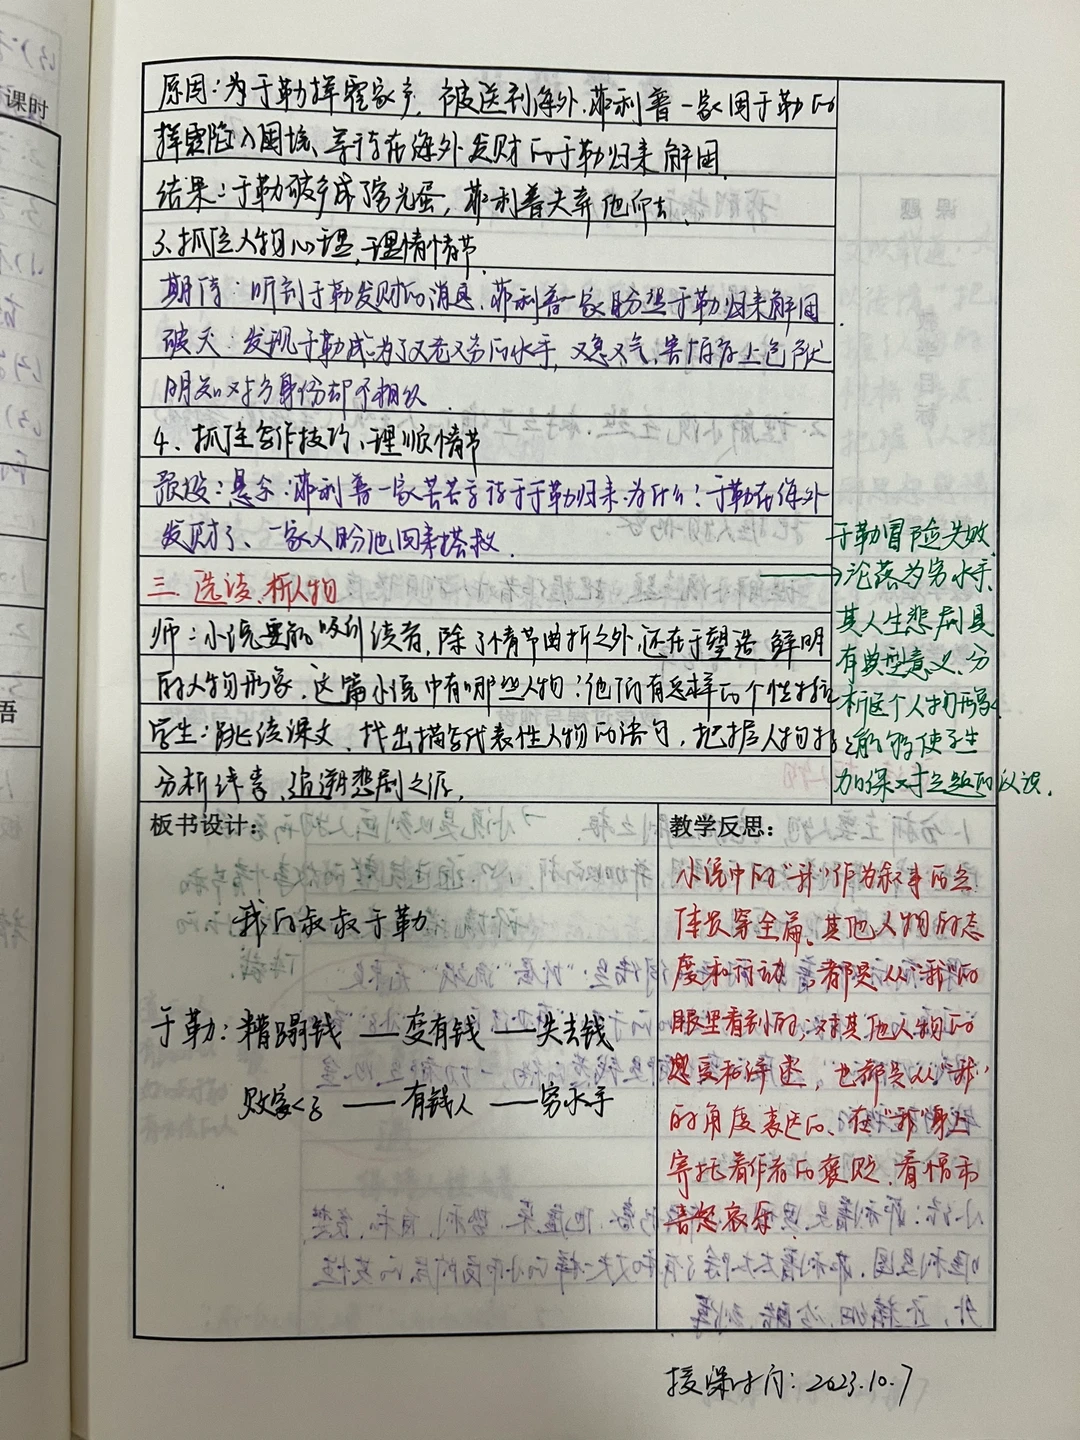 原因：为于勒挥霍家产，被送到海外，菲利普一家因于勒的
挥霍陷入困境、等待在海外发财的于勒归来解困.
结果：于勒破产成了穷光蛋，菲利普夫弃他而去.
3.抓住人物心理，理情情节.
期待：听到于勒发财的消息，菲利普一家盼望于勒归来解困.
破灭：发现于勒成为了又老又穷的水手，又急又气，害怕
明知对方身份却不相认.
4、抓住写作技巧、理顺情节
预投：悬念：菲利普一家苦苦等待于于勒归来.为什么？于勒在海外
发财了、一家人盼他回来搭救.
三.选读、析人物
师：小说要能吸引读者，除了情节曲折之外，还在于塑造鲜明
的人物形象，这篇小说中有哪些人物？他们有怎样的个性
学生：跳读课文，找出描写代表性人物的语句，把握人物
分析线索，追溯悲剧之源.
于勒冒险失败、
沦落为穷水手、
其人生悲剧具
有典型意义、分
析这个人物形象
能够使学生
加深对主题的认识.
板书设计：
我的叔叔于勒
于勒：糟蹋钱——变有钱——失去钱
败家子——有钱人——穷水手
教学反思：
小说中的"我"作为叙事的主
体贯穿全篇、其他人物的态
度和行动，都是从"我"的
眼里看到的；对其他人物的
感受和评述，也都是从"我"
的角度表达的、在"我"身上
寄托着作者的褒贬、看悟和
喜怒哀乐.
授课时间：2023.10.7
课时
语